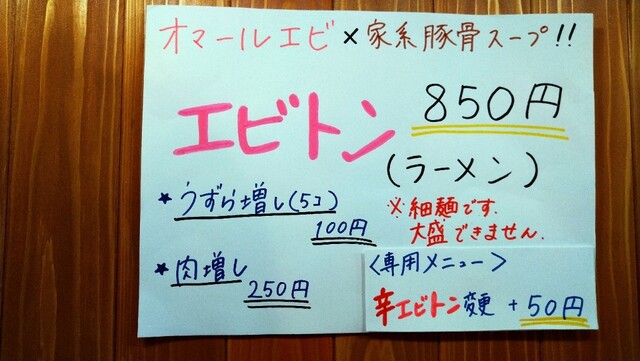 オマールエビ×家系豚骨スープ!!
エビトン 850円
(ラーメン)
★うずら増し(5コ)
100円
※細麺です.
大盛できません.
★肉増し
250円
<専用メニュー>
辛エビトン変更 +50円